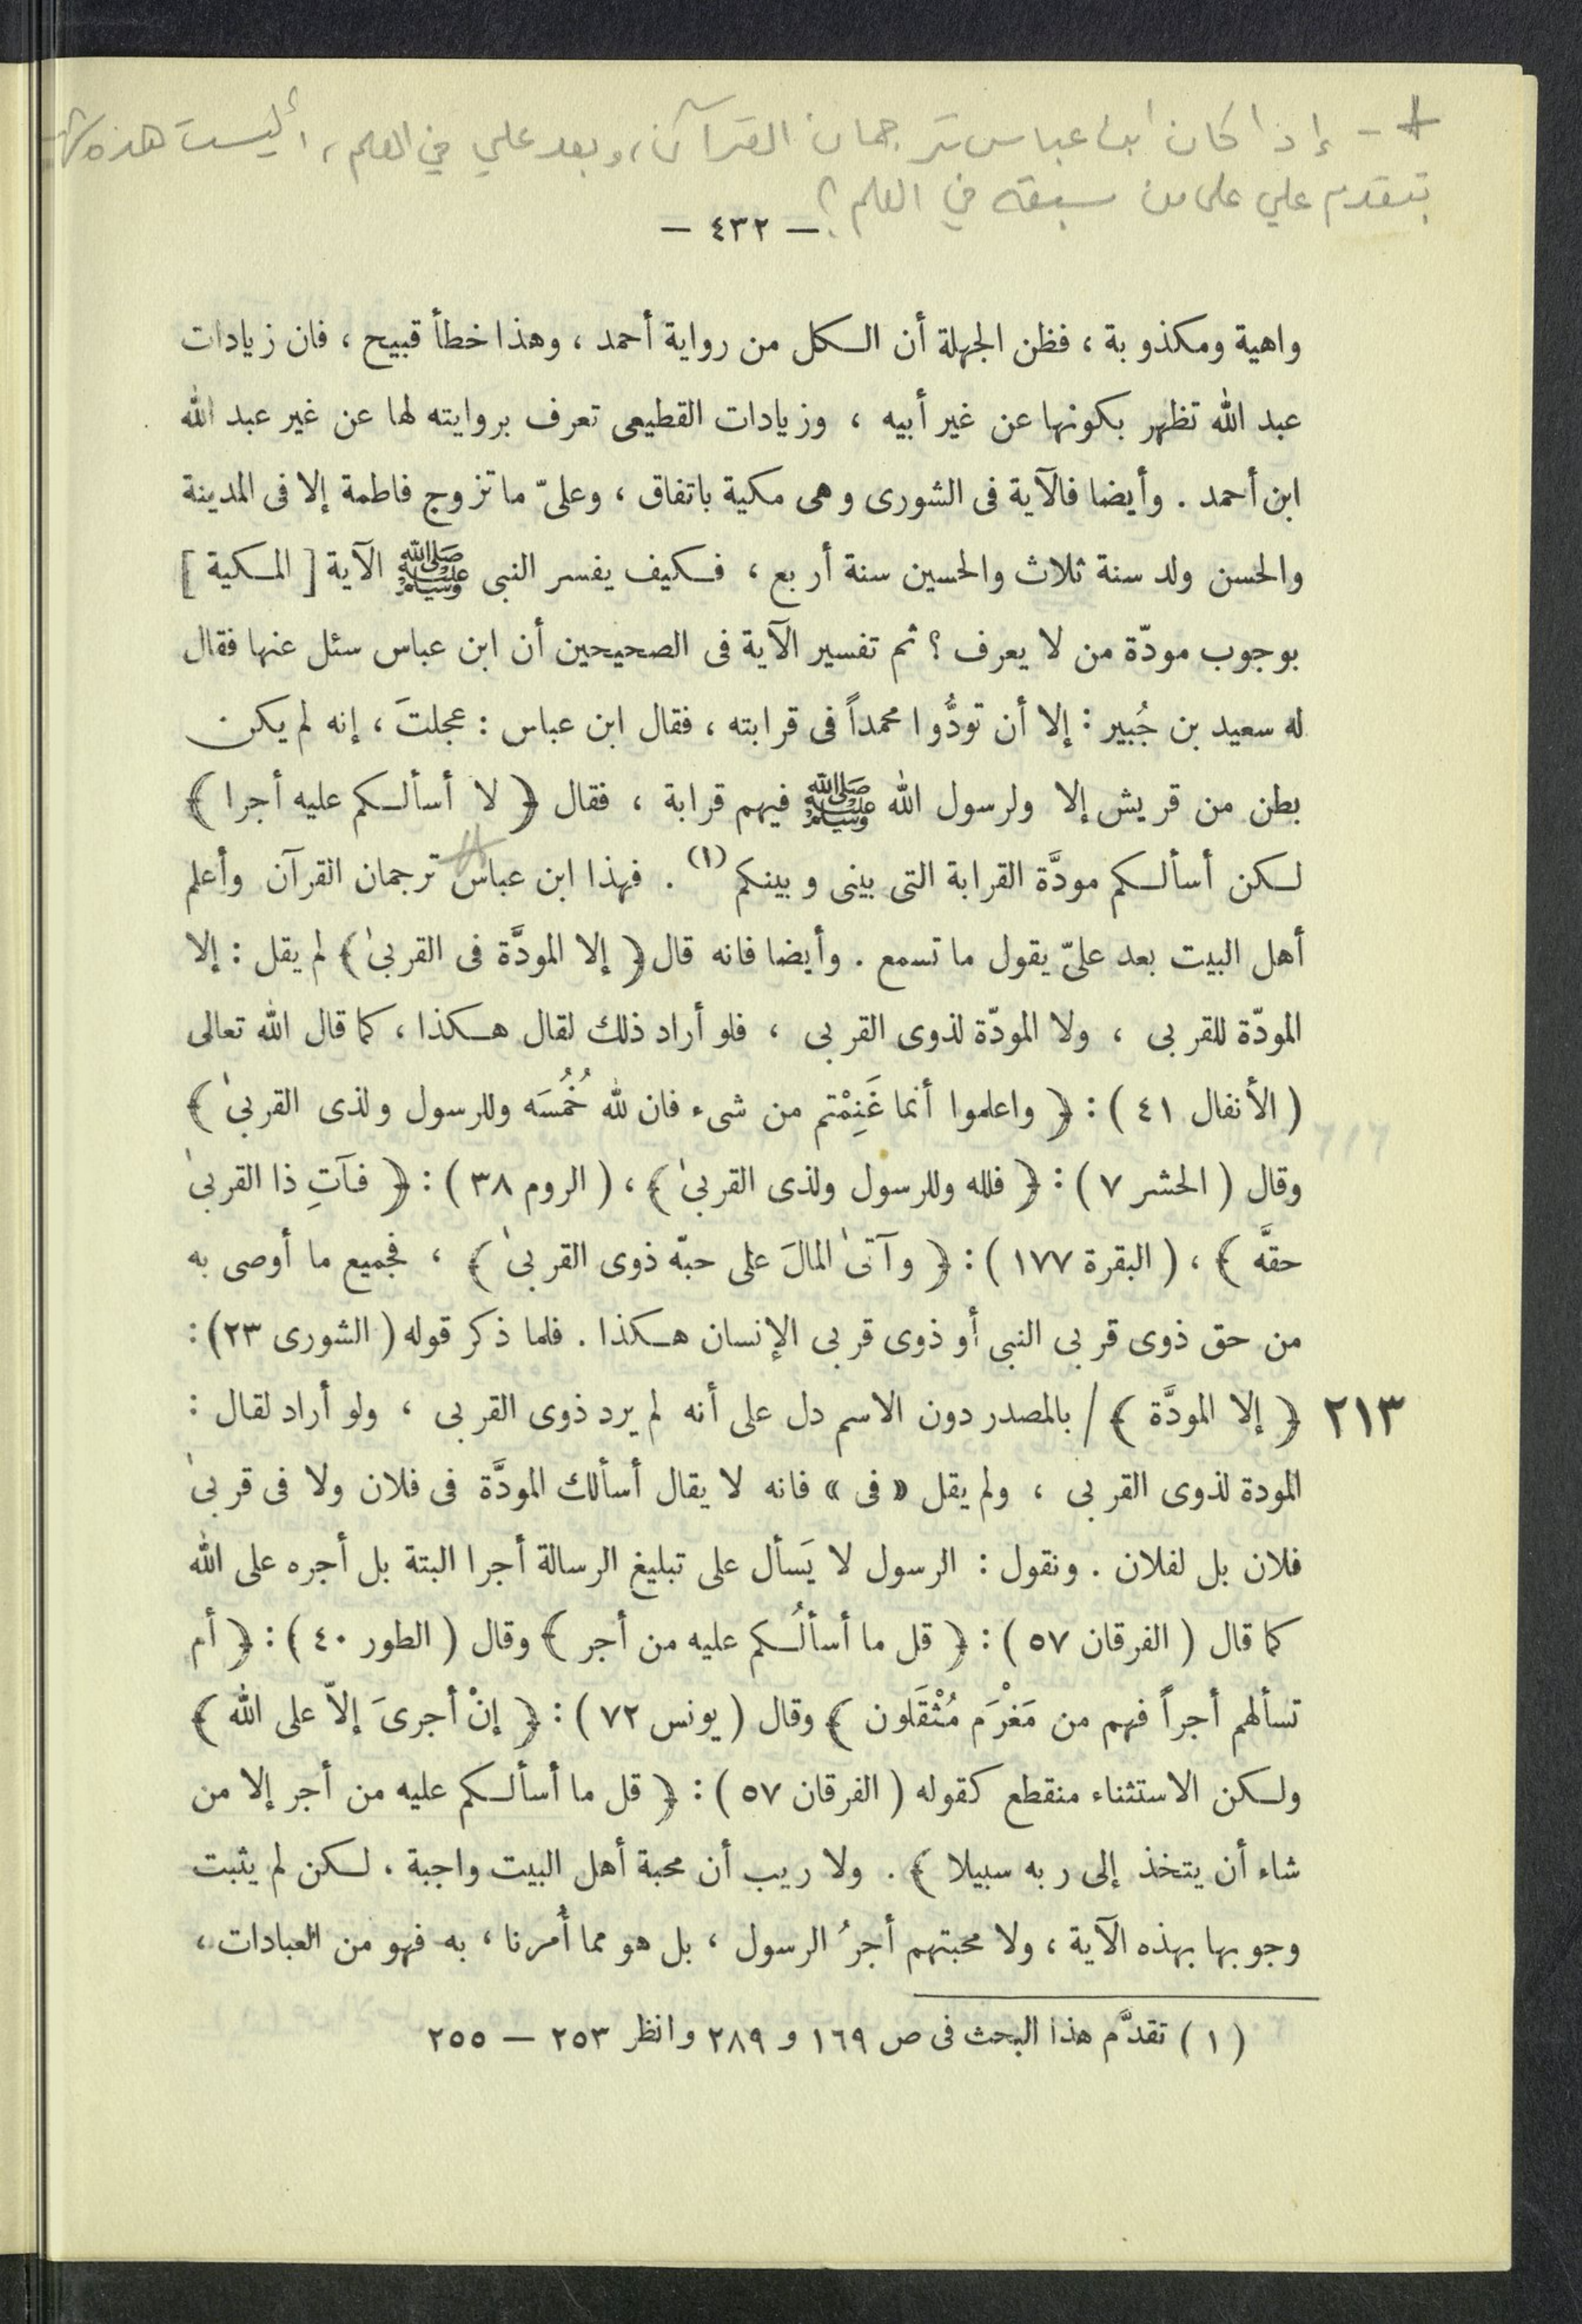 + - إذا كان ابن عباس ترجمان القرآن، وبعد علي في العلم، أليست هذه
بتقدم علي على من سبقه في العلم؟
— ٤٣٢ —
واهية ومكذوبة ، فظن الجهلة أن الكل من رواية أحمد ، وهذا خطأ قبيح ، فان زيادات
عبد الله تظهر بكونها عن غير أبيه ، وزيادات القطيعى تعرف بروايته لها عن غير عبد الله
ابن أحمد . وأيضا فالآية فى الشورى وهى مكية باتفاق ، وعلىّ ما تزوج فاطمة إلا فى المدينة
والحسن ولد سنة ثلاث والحسين سنة أربع ، فكيف يفسر النبى ﷺ الآية [ المكية ]
بوجوب مودّة من لا يعرف ؟ ثم تفسير الآية فى الصحيحين أن ابن عباس سئل عنها فقال
له سعيد بن جُبير : إلا أن تودُّوا محمداً فى قرابته ، فقال ابن عباس : عجلتَ ، إنه لم يكن
بطن من قريش إلا ولرسول الله ﷺ فيهم قرابة ، فقال ﴿ لا أسألكم عليه أجرا ﴾
لكن أسألكم مودَّة القرابة التى بينى وبينكم (١) . فهذا ابن عباس ترجمان القرآن وأعلم
أهل البيت بعد علىّ يقول ما تسمع . وأيضا فانه قال ﴿ إلا المودَّة فى القربىٰ ﴾ لم يقل : إلا
المودّة للقربى ، ولا المودّة لذوى القربى ، فلو أراد ذلك لقال هكذا ، كما قال الله تعالى
( الأنفال ٤١ ) : ﴿ واعلموا أنما غَنِمْتم من شىء فان لله خُمُسَه وللرسول ولذى القربىٰ ﴾
وقال ( الحشر ٧ ) : ﴿ فلله وللرسول ولذى القربىٰ ﴾ ، ( الروم ٣٨ ) : ﴿ فآتِ ذا القربىٰ
حقَّه ﴾ ، ( البقرة ١٧٧ ) : ﴿ وآتىٰ المالَ على حبّه ذوى القربىٰ ﴾ ، فجميع ما أوصى به
من حق ذوى قربى النبى أو ذوى قربى الإنسان هكذا . فلما ذكر قوله ( الشورى ٢٣ ) :
٢١٣ ﴿ إلا المودَّة ﴾ / بالمصدر دون الاسم دل على أنه لم يرد ذوى القربى ، ولو أراد لقال :
المودة لذوى القربى ، ولم يقل « فى » فانه لا يقال أسألك المودَّة فى فلان ولا فى قربىٰ
فلان بل لفلان . ونقول : الرسول لا يَسأل على تبليغ الرسالة أجرا البتة بل أجره على الله
كما قال ( الفرقان ٥٧ ) : ﴿ قل ما أسألُكم عليه من أجر ﴾ وقال ( الطور ٤٠ ) : ﴿ أم
تسألهم أجراً فهم من مَغْرَم مُثْقَلون ﴾ وقال ( يونس ٧٢ ) : ﴿ إنْ أجرىَ إلاّ على الله ﴾
ولكن الاستثناء منقطع كقوله ( الفرقان ٥٧ ) : ﴿ قل ما أسألكم عليه من أجر إلا من
شاء أن يتخذ إلى ربه سبيلا ﴾ . ولا ريب أن محبة أهل البيت واجبة ، لكن لم يثبت
وجوبها بهذه الآية ، ولا محبتهم أجرُ الرسول ، بل هو مما أُمرنا ، به فهو من العبادات ،
( ١ ) تقدَّم هذا البحث فى ص ١٦٩ و ٢٨٩ وانظر ٢٥٣ — ٢٥٥